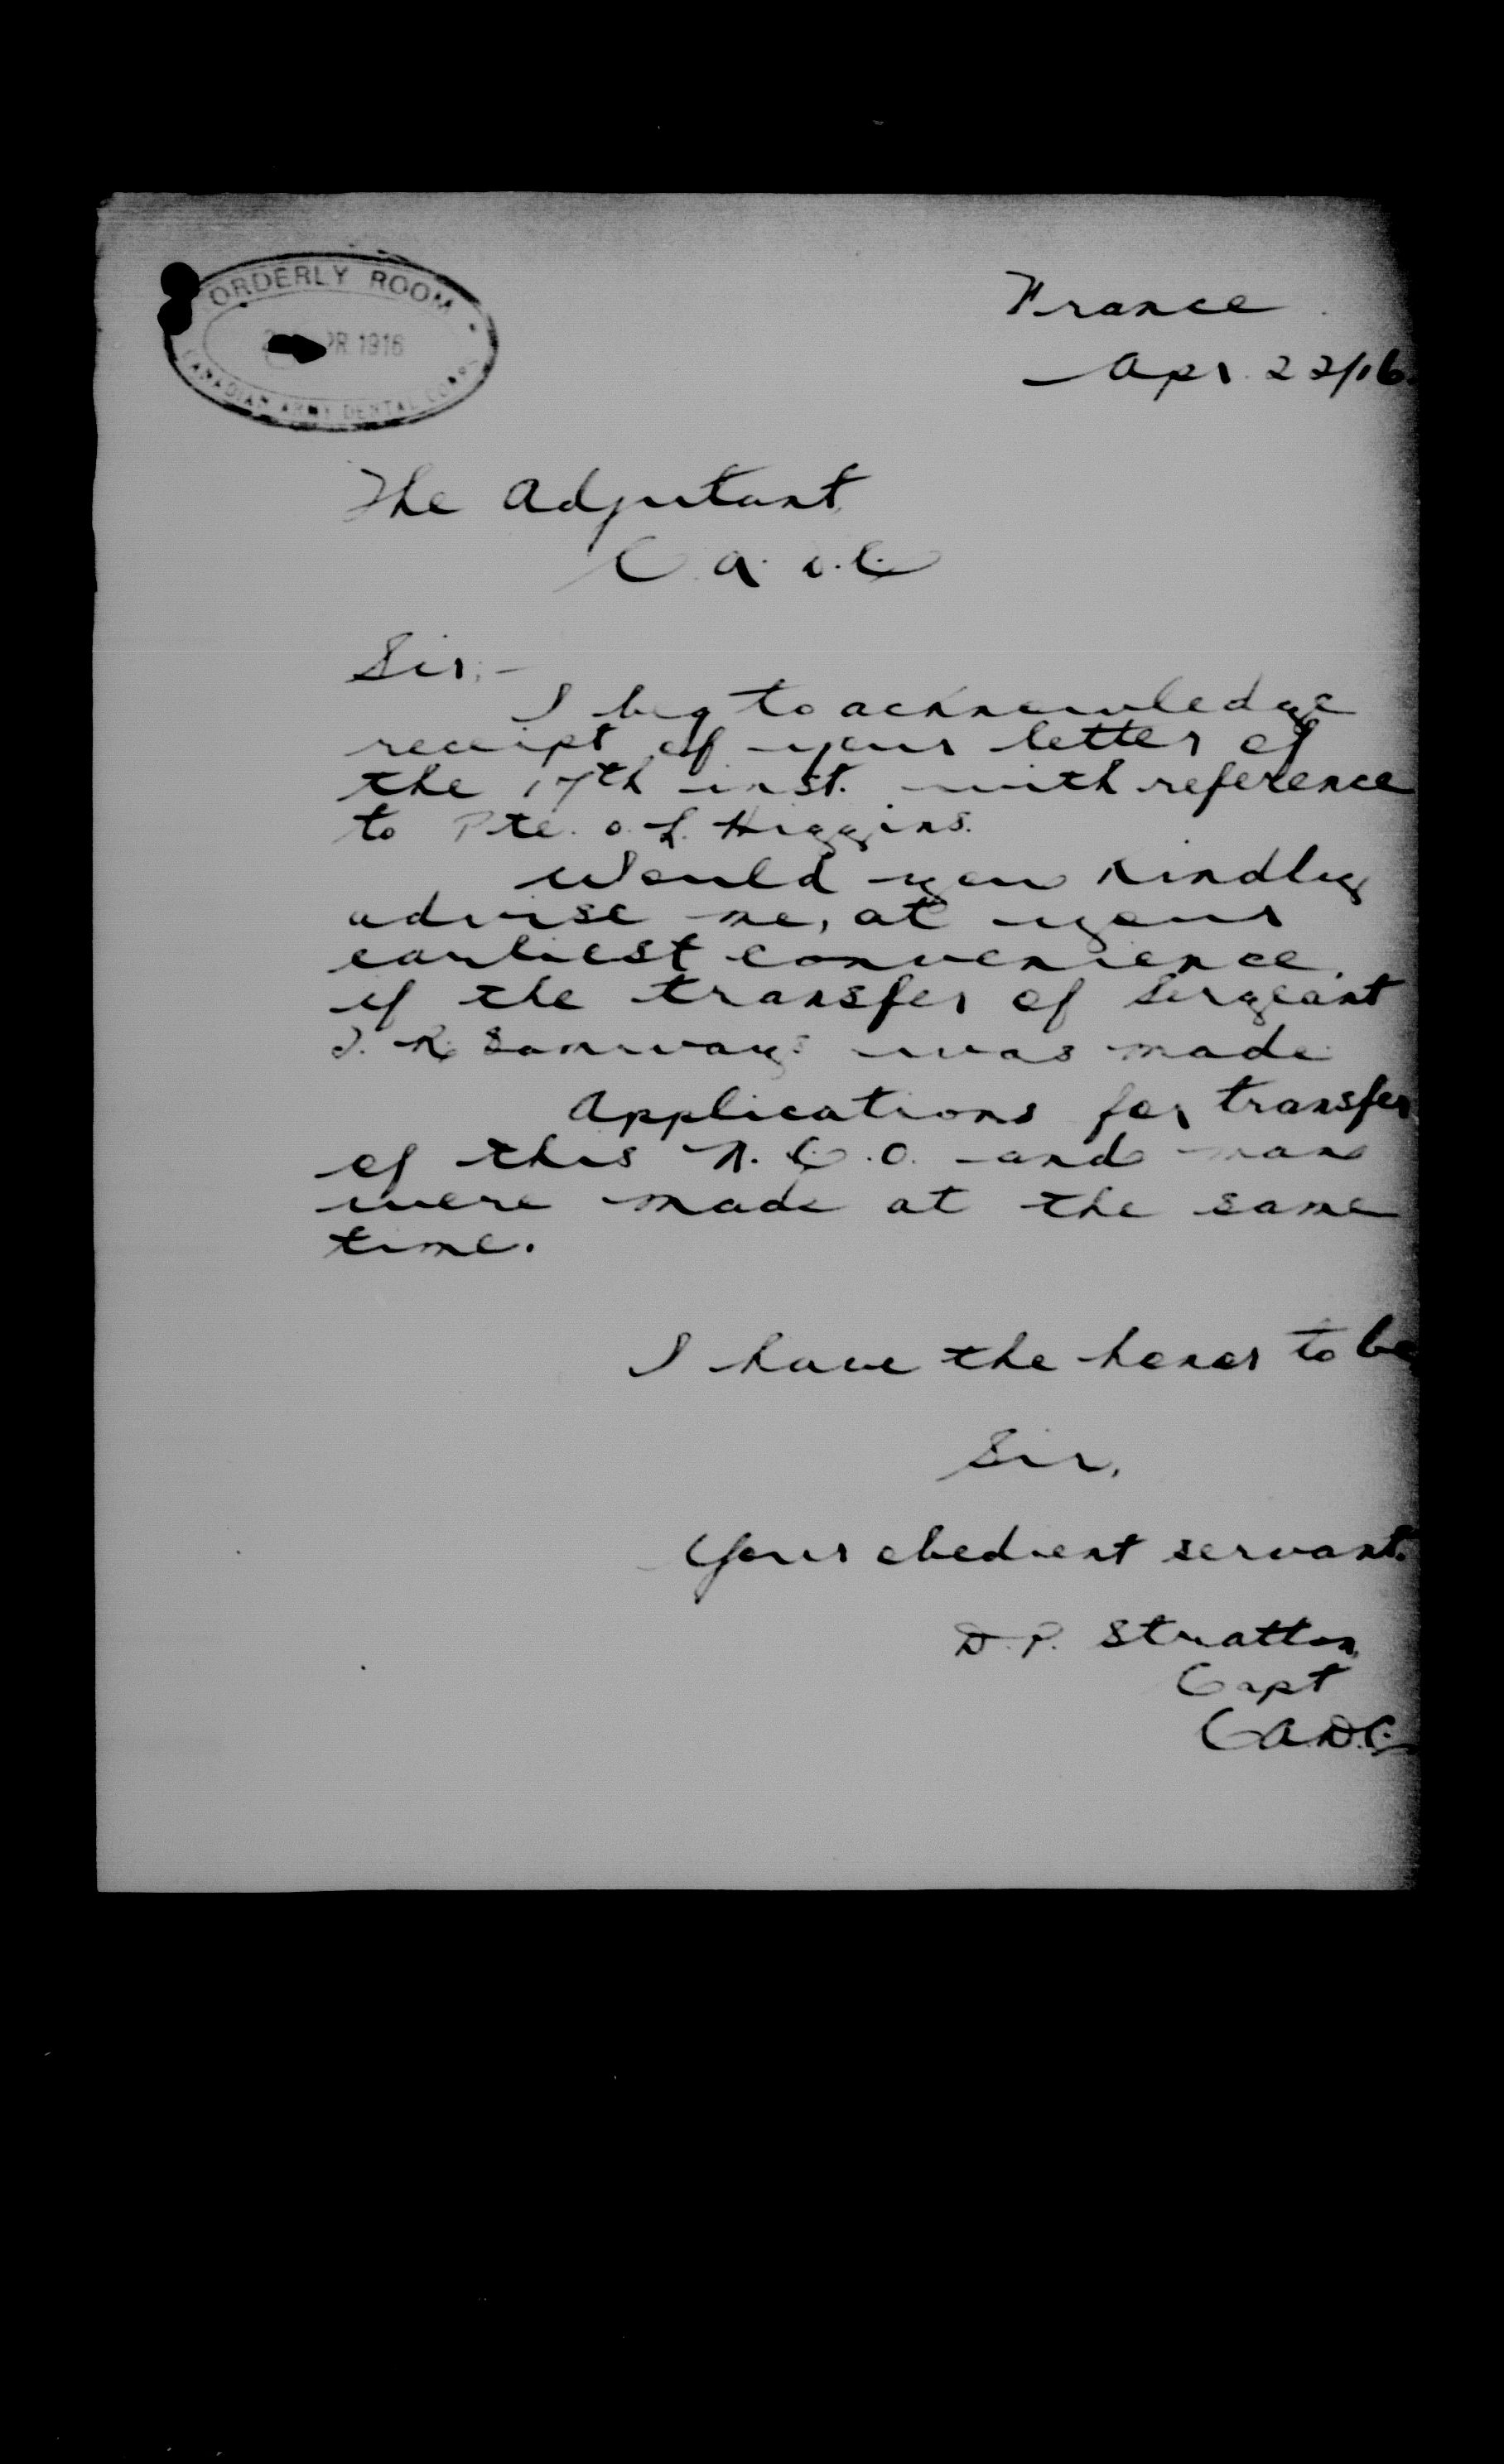 ORDERLY ROOM
PR. 1916
CANADIAN ARMY DENTAL CORPS
France
Apr. 22/16.
The Adjutant,
C.A.D.C.
Sir;-
I beg to acknowledge
receipt of your letter of
the 17th inst. with reference
to Pte. O.L. Higgins.
Would you kindly
advise me, at your
earliest convenience,
if the transfer of Sergeant
J. R. Samways was made.
Applications for transfer
of this N.C.O. and man
were made at the same
time.
I have the honor to be
Sir,
Your obedient servant.
D.P. Stratton,
Capt
C.A.D.C.